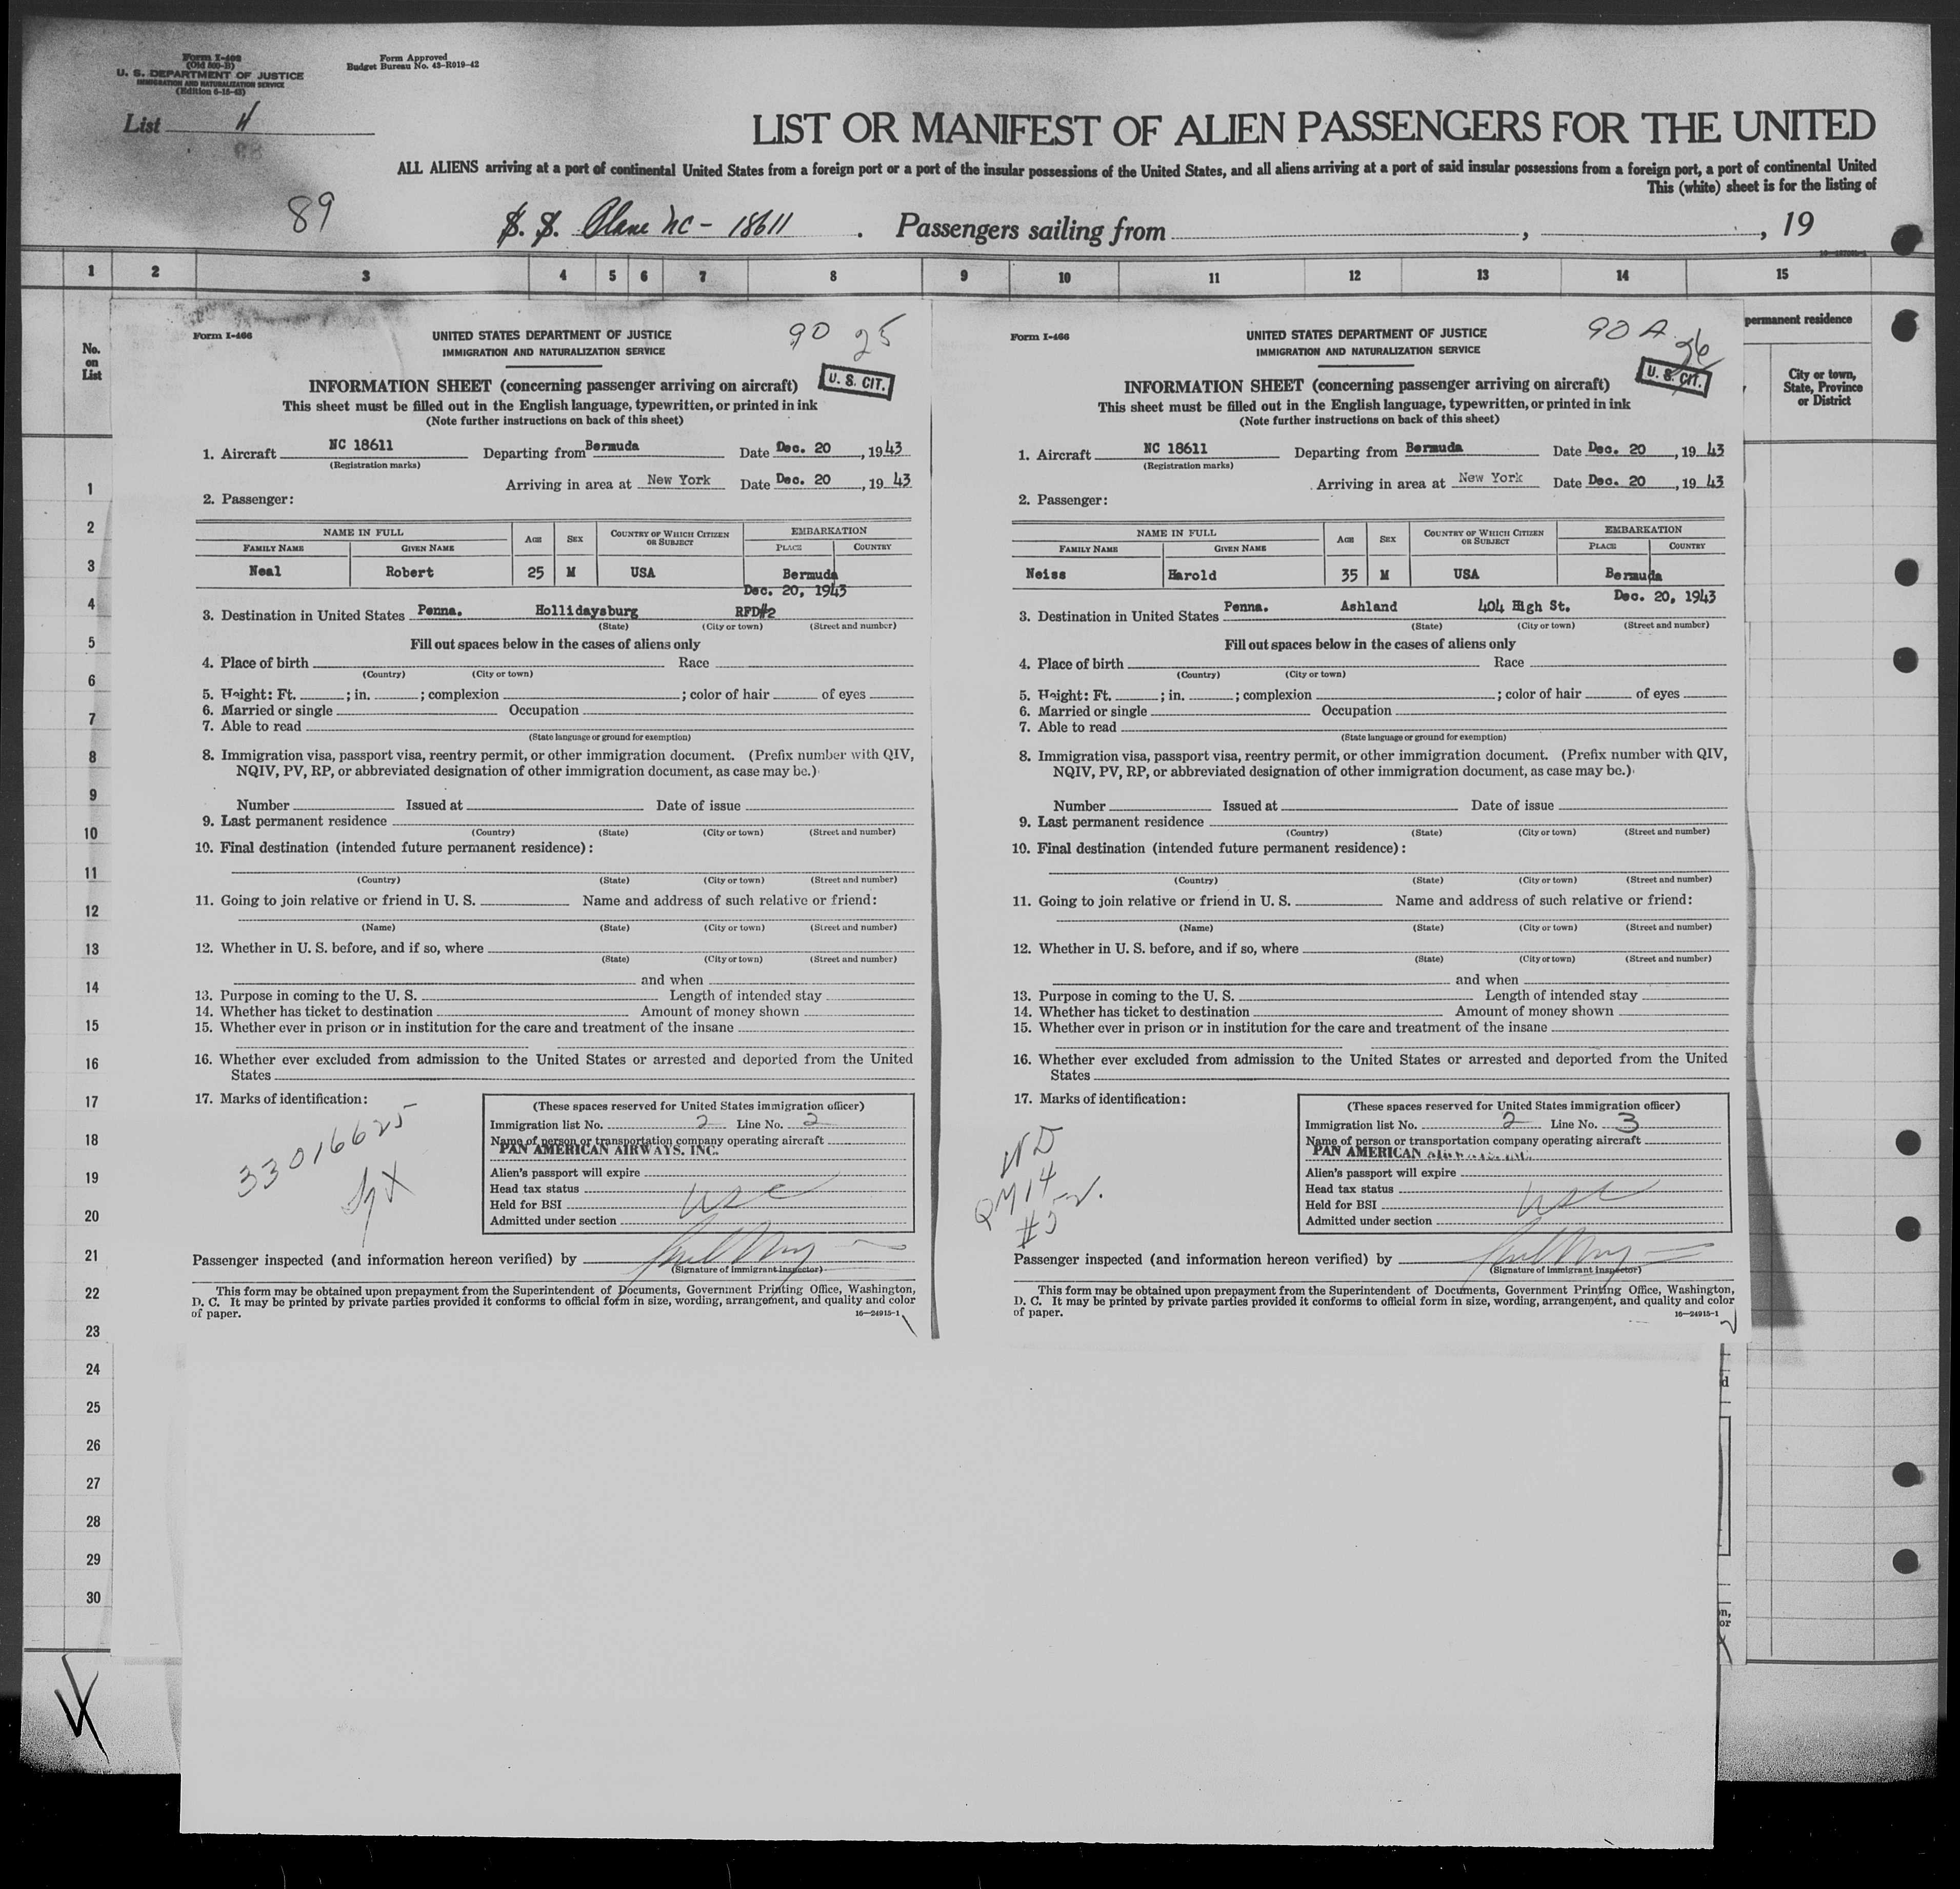 Form I-466
(Old 500-B)
U. S. DEPARTMENT OF JUSTICE
IMMIGRATION AND NATURALIZATION SERVICE
(Edition 6-15-43)
Form Approved
Budget Bureau No. 43-R019-42
List 4
LIST OR MANIFEST OF ALIEN PASSENGERS FOR THE UNITED
ALL ALIENS arriving at a port of continental United States from a foreign port or a port of the insular possessions of the United States, and all aliens arriving at a port of said insular possessions from a foreign port, a port of continental United
This (white) sheet is for the listing of
89
S. S. Plane NC - 18611. Passengers sailing from , , 19
1 2 3 4 5 6 7 8 9 10 11 12 13 14 15
No.
on
List
permanent residence
City or town,
State, Province
or District
1
2
3
4
5
6
7
8
9
10
11
12
13
14
15
16
17
18
19
20
21
22
23
24
25
26
27
28
29
30
4
Form I-466
UNITED STATES DEPARTMENT OF JUSTICE
IMMIGRATION AND NATURALIZATION SERVICE
90 25
U. S. CIT.
INFORMATION SHEET (concerning passenger arriving on aircraft)
This sheet must be filled out in the English language, typewritten, or printed in ink
(Note further instructions on back of this sheet)
1. Aircraft NC 18611 Departing from Bermuda Date Dec. 20, 1943
(Registration marks)
Arriving in area at New York Date Dec. 20, 1943
2. Passenger:
NAME IN FULL AGE SEX COUNTRY OF WHICH CITIZEN OR SUBJECT EMBARKATION
FAMILY NAME GIVEN NAME PLACE COUNTRY
Neal Robert 25 M USA Bermuda
Dec. 20, 1943
3. Destination in United States Penna. Hollidaysburg RFD#2
(State) (City or town) (Street and number)
Fill out spaces below in the cases of aliens only
4. Place of birth Race
(Country) (City or town)
5. Height: Ft. ; in. ; complexion ; color of hair of eyes
6. Married or single Occupation
7. Able to read
(State language or ground for exemption)
8. Immigration visa, passport visa, reentry permit, or other immigration document. (Prefix number with QIV,
NQIV, PV, RP, or abbreviated designation of other immigration document, as case may be.)
Number Issued at Date of issue
9. Last permanent residence
(Country) (State) (City or town) (Street and number)
10. Final destination (intended future permanent residence):
(Country) (State) (City or town) (Street and number)
11. Going to join relative or friend in U. S. Name and address of such relative or friend:
(Name) (State) (City or town) (Street and number)
12. Whether in U. S. before, and if so, where
(State) (City or town) (Street and number)
and when
13. Purpose in coming to the U. S. Length of intended stay
14. Whether has ticket to destination Amount of money shown
15. Whether ever in prison or in institution for the care and treatment of the insane
16. Whether ever excluded from admission to the United States or arrested and deported from the United
States
17. Marks of identification:
33016625
(These spaces reserved for United States immigration officer)
Immigration list No. 2 Line No. 2
Name of person or transportation company operating aircraft
PAN AMERICAN AIRWAYS, INC.
Alien's passport will expire
Head tax status usc
Held for BSI
Admitted under section
Passenger inspected (and information hereon verified) by
(Signature of immigrant inspector)
This form may be obtained upon prepayment from the Superintendent of Documents, Government Printing Office, Washington,
D. C. It may be printed by private parties provided it conforms to official form in size, wording, arrangement, and quality and color
of paper. 16—24915-1
Form I-466
UNITED STATES DEPARTMENT OF JUSTICE
IMMIGRATION AND NATURALIZATION SERVICE
90 A 26
U. S. CIT.
INFORMATION SHEET (concerning passenger arriving on aircraft)
This sheet must be filled out in the English language, typewritten, or printed in ink
(Note further instructions on back of this sheet)
1. Aircraft NC 18611 Departing from Bermuda Date Dec. 20, 1943
(Registration marks)
Arriving in area at New York Date Dec. 20, 1943
2. Passenger:
NAME IN FULL AGE SEX COUNTRY OF WHICH CITIZEN OR SUBJECT EMBARKATION
FAMILY NAME GIVEN NAME PLACE COUNTRY
Neiss Harold 35 M USA Bermuda
Dec. 20, 1943
3. Destination in United States Penna. Ashland 404 High St.
(State) (City or town) (Street and number)
Fill out spaces below in the cases of aliens only
4. Place of birth Race
(Country) (City or town)
5. Height: Ft. ; in. ; complexion ; color of hair of eyes
6. Married or single Occupation
7. Able to read
(State language or ground for exemption)
8. Immigration visa, passport visa, reentry permit, or other immigration document. (Prefix number with QIV,
NQIV, PV, RP, or abbreviated designation of other immigration document, as case may be.)
Number Issued at Date of issue
9. Last permanent residence
(Country) (State) (City or town) (Street and number)
10. Final destination (intended future permanent residence):
(Country) (State) (City or town) (Street and number)
11. Going to join relative or friend in U. S. Name and address of such relative or friend:
(Name) (State) (City or town) (Street and number)
12. Whether in U. S. before, and if so, where
(State) (City or town) (Street and number)
and when
13. Purpose in coming to the U. S. Length of intended stay
14. Whether has ticket to destination Amount of money shown
15. Whether ever in prison or in institution for the care and treatment of the insane
16. Whether ever excluded from admission to the United States or arrested and deported from the United
States
17. Marks of identification:
WD
QM 14
(These spaces reserved for United States immigration officer)
Immigration list No. 2 Line No. 3
Name of person or transportation company operating aircraft
PAN AMERICAN AIRWAYS, INC.
Alien's passport will expire
Head tax status usc
Held for BSI
Admitted under section
Passenger inspected (and information hereon verified) by
(Signature of immigrant inspector)
This form may be obtained upon prepayment from the Superintendent of Documents, Government Printing Office, Washington,
D. C. It may be printed by private parties provided it conforms to official form in size, wording, arrangement, and quality and color
of paper. 16—24915-1